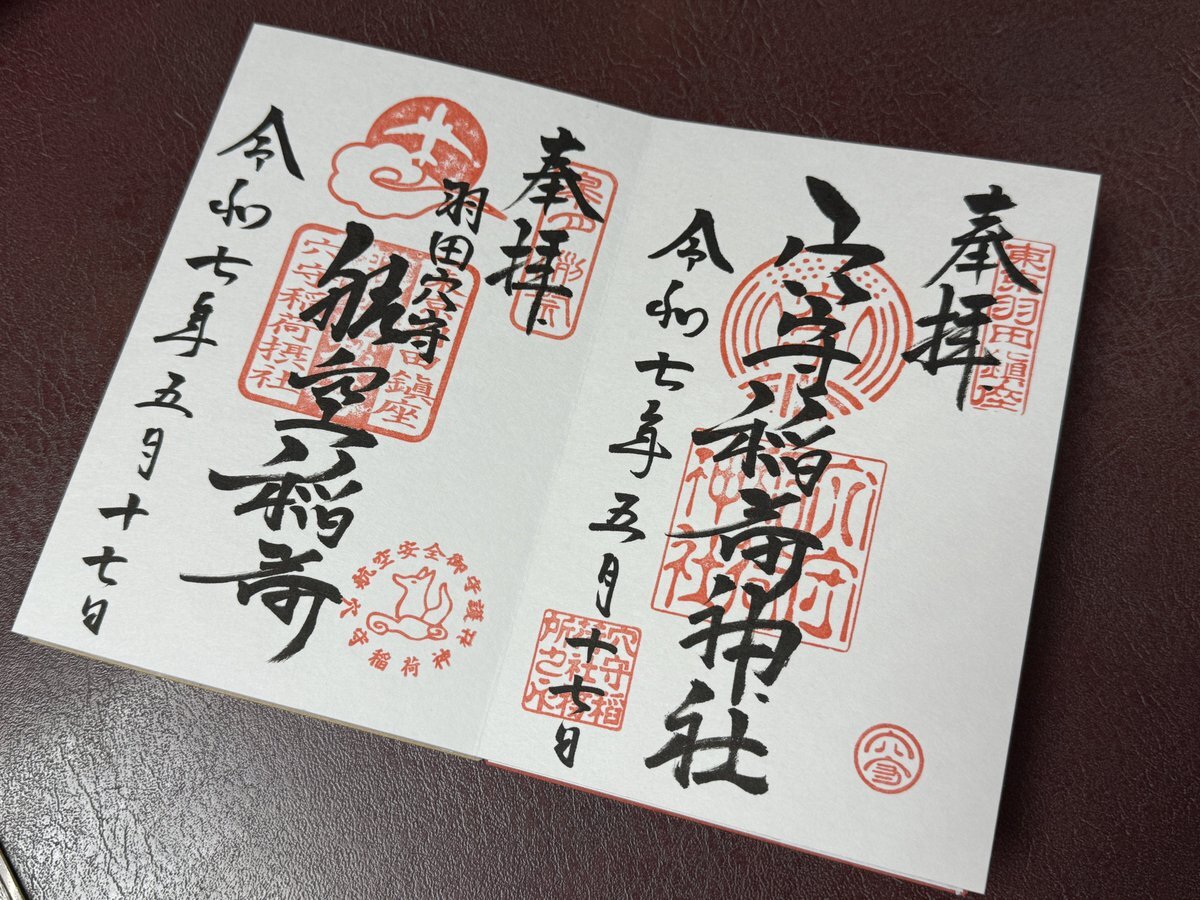 奉拝
東京羽田鎮座
穴守稲荷神社
穴守稲荷神社
令和七年五月十七日
穴守稲荷神社社務所之印
穴守
奉拝
羽田穴守
航空稲荷
穴守稲荷摂社
航空安全御守護
穴守稲荷神社
令和七年五月十七日